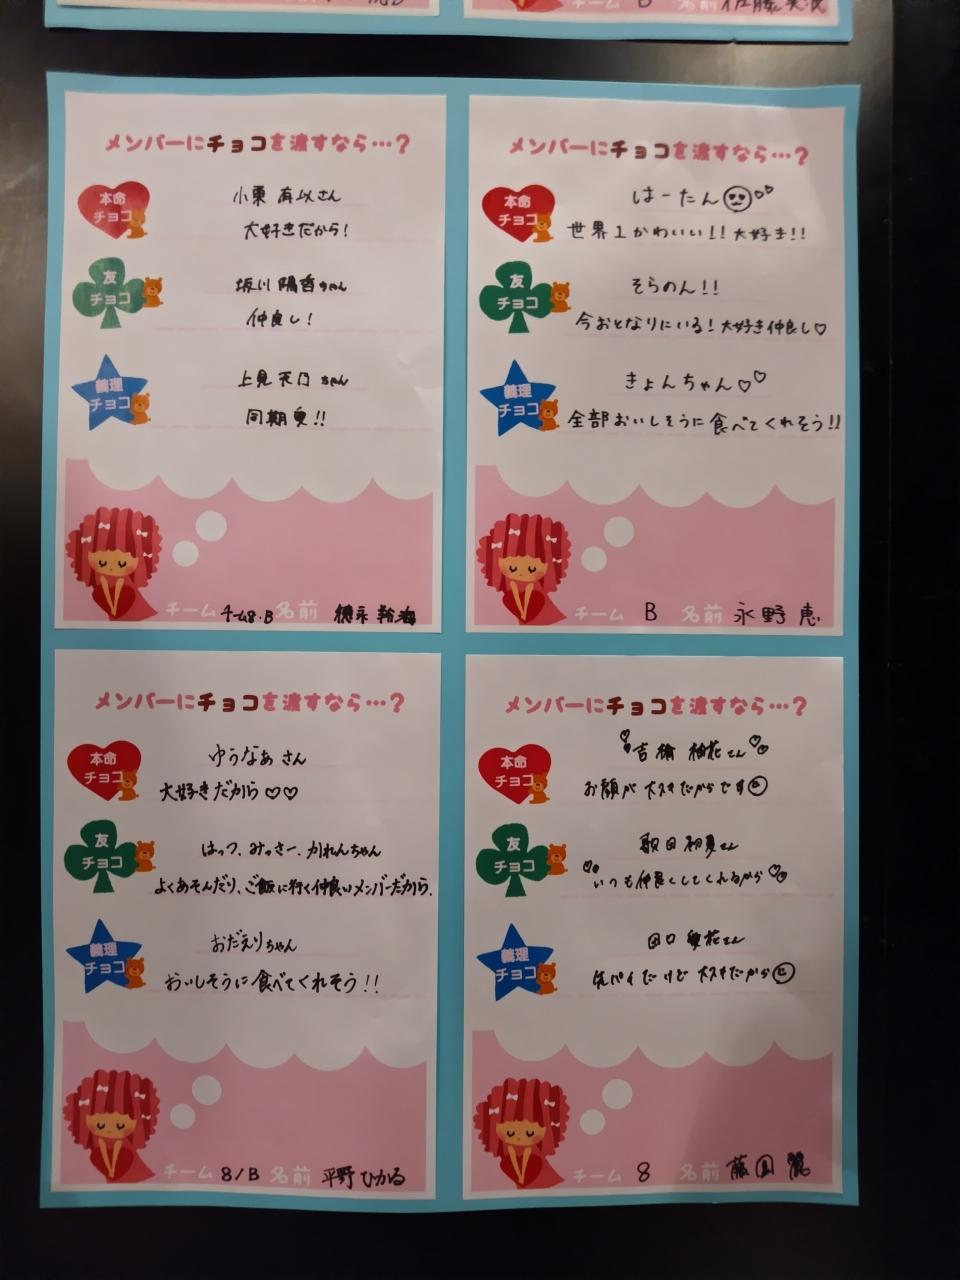 チーム B 名前 佐藤美波
メンバーにチョコを渡すなら…?
本命
チョコ
小栗 有以さん
大好きだから!
友
チョコ
坂川 陽香ちゃん
仲良し!
義理
チョコ
上見 天乃ちゃん
同期愛!!
チーム チーム8・B 名前 徳永 羚海
メンバーにチョコを渡すなら…?
本命
チョコ
はーたん
世界1かわいい!!大好き!!
友
チョコ
そらのん!!
今おとなりにいる!大好き仲良し♡
義理
チョコ
きょんちゃん♡♡
全部おいしそうに食べてくれそう!!
チーム B 名前 永野 恵
メンバーにチョコを渡すなら…?
本命
チョコ
ゆうなぁさん
大好きだから♡♡
友
チョコ
はっつ、みっさー、かれんちゃん
よくあそんだり、ご飯に行く仲良いメンバーだから.
義理
チョコ
おだえりちゃん
おいしそうに食べてくれそう!!
チーム 8/B 名前 平野ひかる
メンバーにチョコを渡すなら…?
本命
チョコ
吉橋 柚花さん
お顔が大スキだからです
友
チョコ
歌田初夏さん
いつも仲良くしてくれるから
義理
チョコ
田口 愛佳さん
先パイだけど大スキだから
チーム 8 名前 藤園 麗